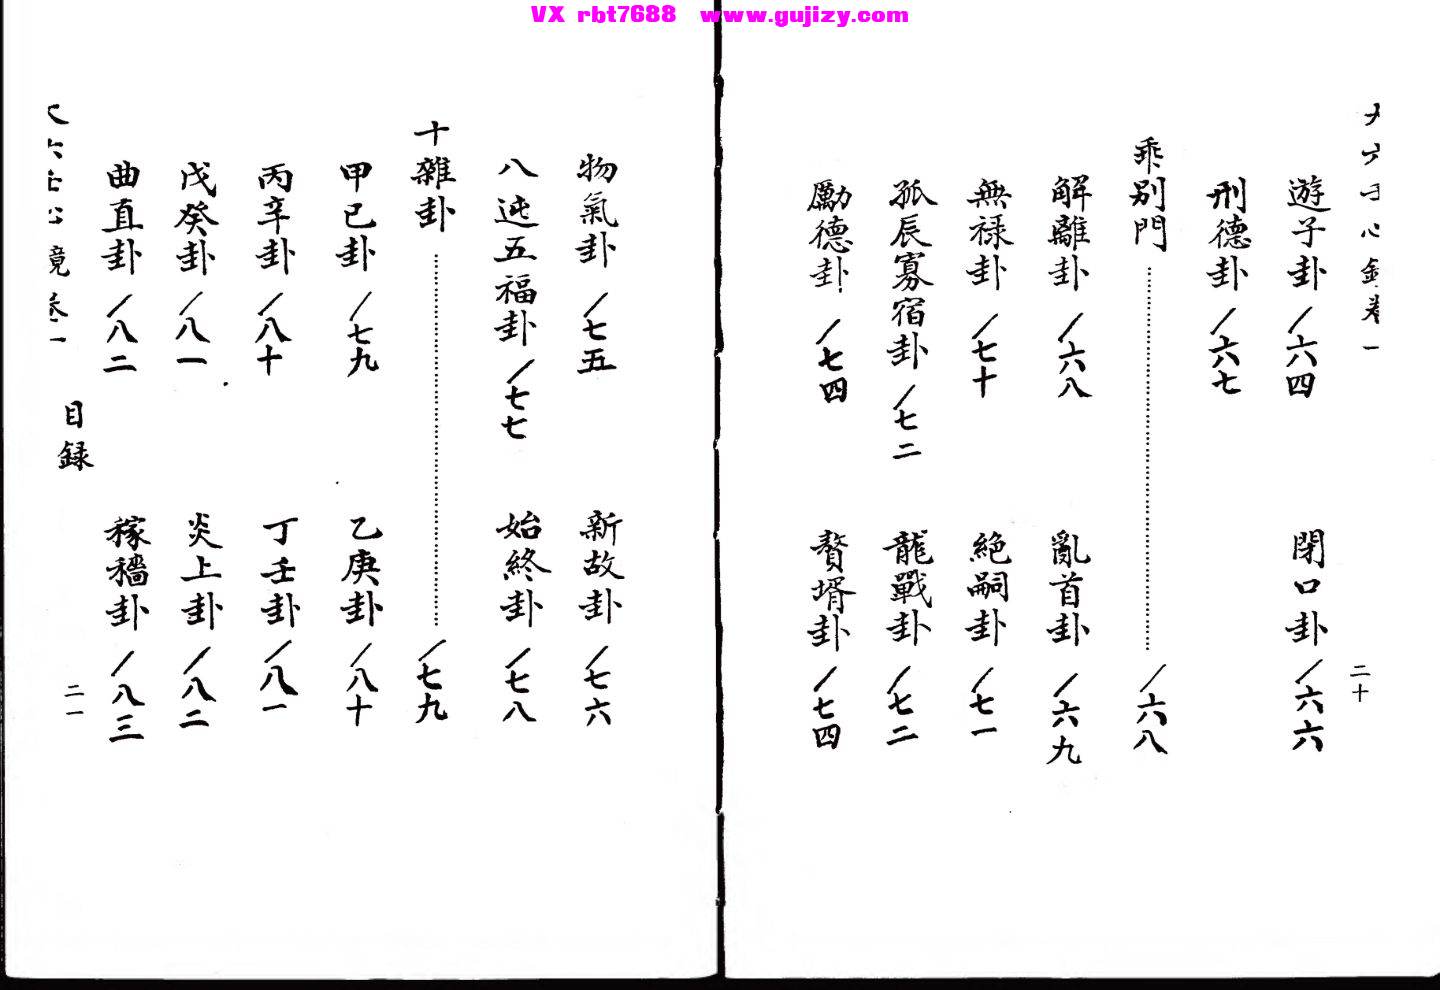 VX rbt7688 www.gujizy.com
大六壬心鏡卷一
二十
遊子卦/六四
閉口卦/六六
刑德卦/六七
乖別門/六八
解離卦/六八
亂首卦/六九
無祿卦/七十
絕嗣卦/七一
孤辰寡宿卦/七二
龍戰卦/七二
勵德卦/七四
贅壻卦/七四
物氣卦/七五
新故卦/七六
八迍五福卦/七七
始終卦/七八
十雜卦/七九
甲己卦/七九
乙庚卦/八十
丙辛卦/八十
丁壬卦/八一
戊癸卦/八一
炎上卦/八二
曲直卦/八二
稼穡卦/八三
大六壬心鏡卷一 目録 二一